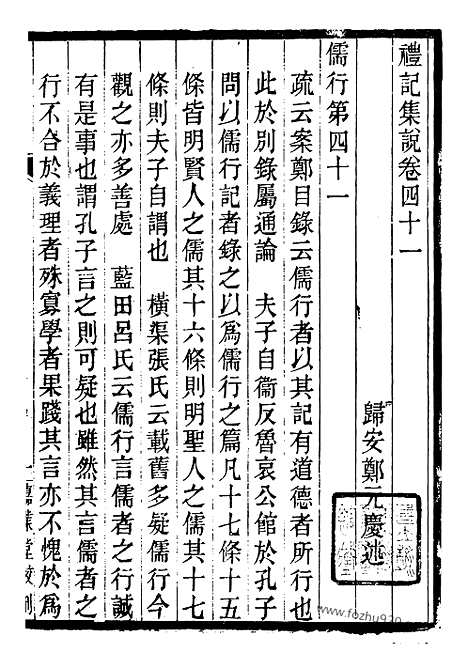 禮記集說卷四十一
歸安鄭元慶述
儒行第四十一
疏云案鄭目錄云儒行者以其記有道德者所行也
此於別錄屬通論　夫子自衞反魯哀公館於孔子
問以儒行記者錄之以爲儒行之篇凡十七條十五
條皆明賢人之儒其十六條則明聖人之儒其十七
條則夫子自謂也　橫渠張氏云載舊多疑儒行今
觀之亦多善處　藍田呂氏云儒行言儒者之行誠
有是事也謂孔子言之則可疑也雖然其言儒者之
行不合於義理者殊寡學者果踐其言亦不愧於爲
www.fozhu920.com